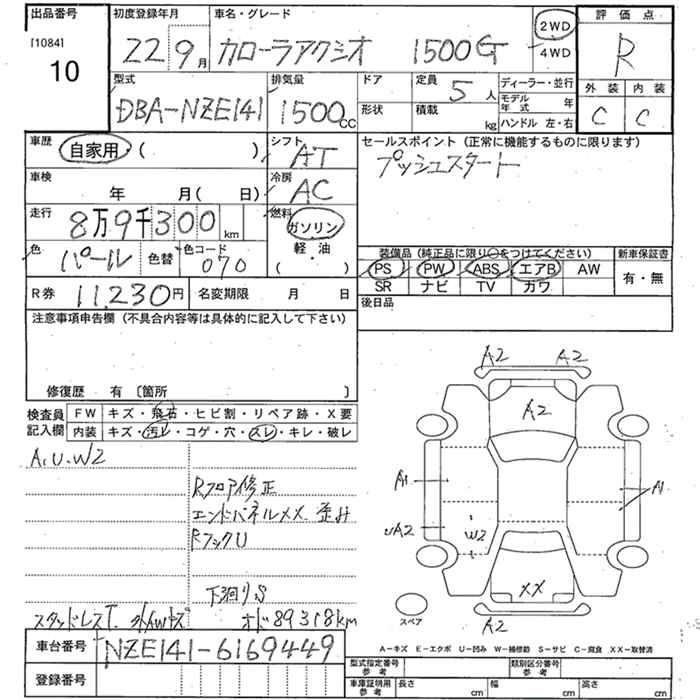 出品番号 初度登録年月 車名・グレード 評価点
[1084] 10 22 9月 カローラアクシオ 1500G 2WD 4WD R
型式 排気量 ドア 定員 ディーラー・並行 外装 内装
DBA-NZE141 1500CC 5人 モデル年式 年 C C
形状 積載 kg ハンドル 左・右
車歴 自家用 ( ) シフト AT セールスポイント(正常に機能するものに限ります)
プッシュスタート
車検 年 月( 日) 冷房 AC
走行 8万9千300km 燃料 ガソリン
軽・油
( )
色 パール 色替 色コード 070 装備品(純正品に限り○をつけてください) 新車保証書
PS PW ABS エアB AW 有・無
SR ナビ TV カワ
R券 11,230円 名変期限 月 日 後日品
注意事項申告欄(不具合内容等は具体的に記入して下さい)
修復歴 有〔箇所 〕
検査員記入欄 FW キズ・飛石・ヒビ割・リペア跡・X要
内装 キズ・汚レ・コゲ・穴・スレ・キレ・破レ
A,U,W2
Rフロア修正
エンドパネルXX、歪み
RフックU
下廻りS
スタッドレスT. オド89318km
A2 A2
A2
A1 A1
UA2 W2
XX
A2
スペア
A-キズ E-エクボ U-凹み W-補修跡 S-サビ C-腐食 XX-取替済
車台番号 NZE141-6169449
登録番号
型式指定番号 参考 類別区分番号 参考
車庫証明用 参考 長さ cm 幅 cm 高さ cm